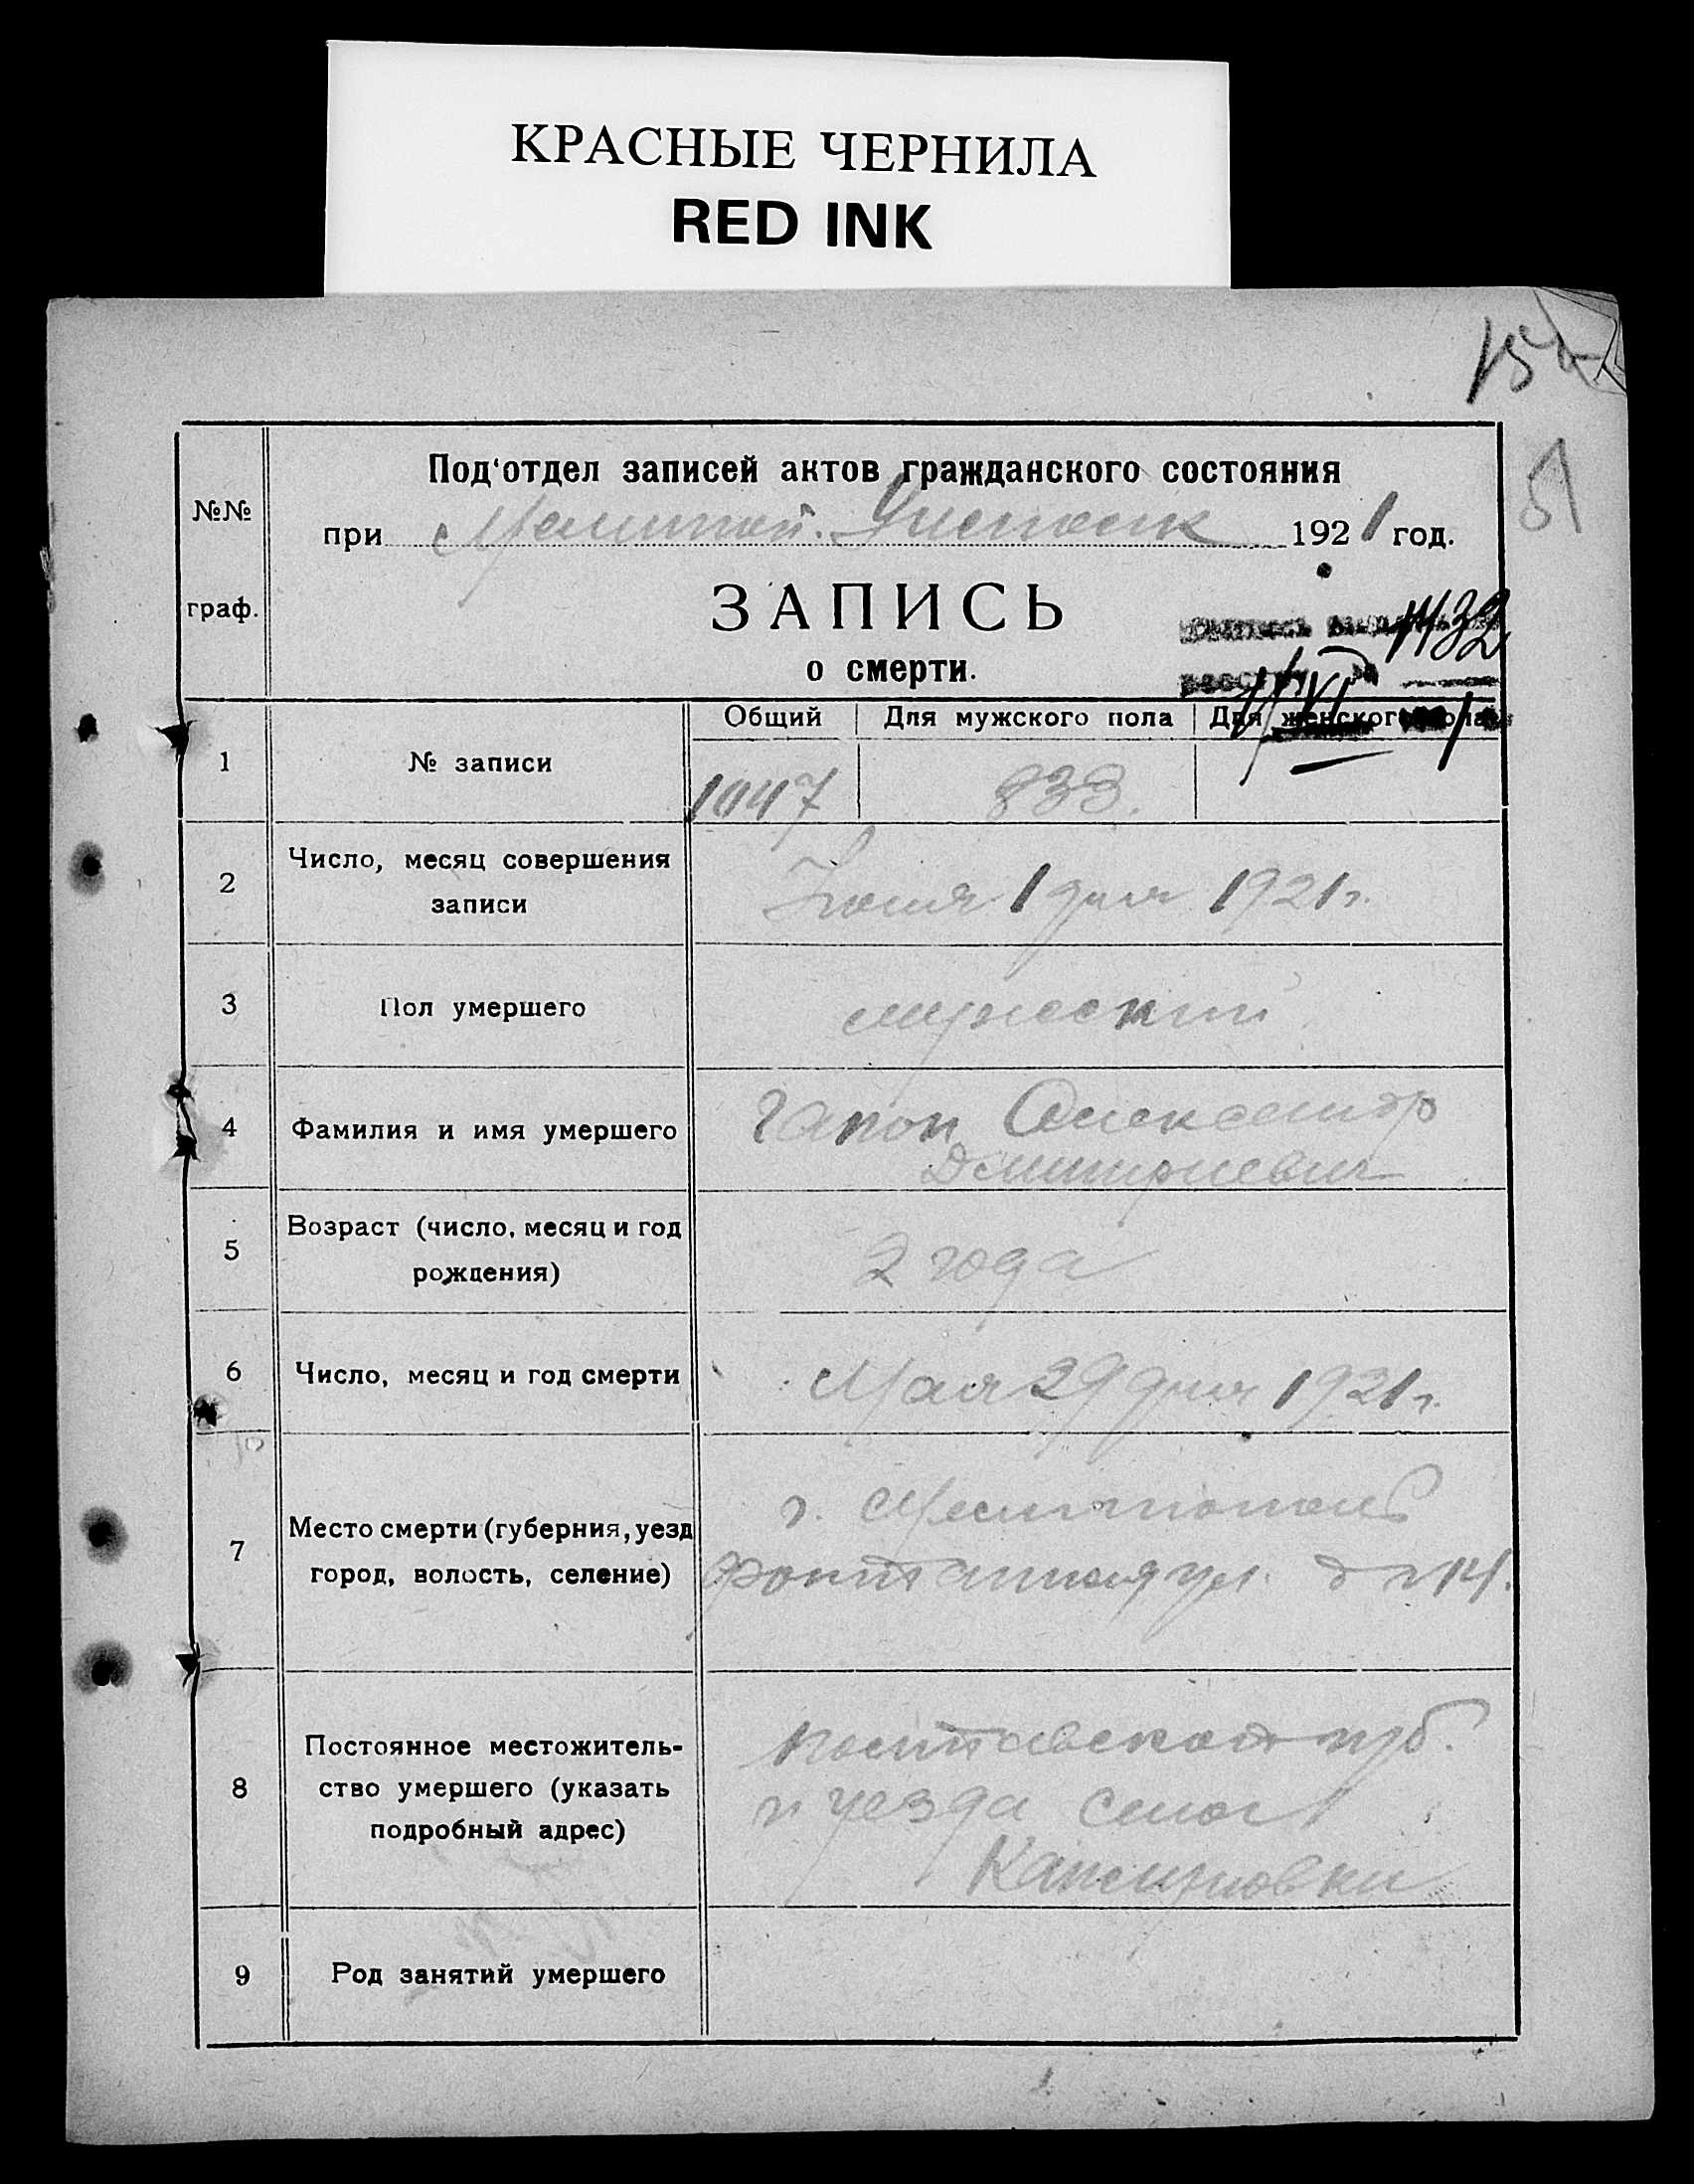 КРАСНЫЕ ЧЕРНИЛА
RED INK
51
№№
граф.
Под'отдел записей актов гражданского состояния
при 1921 год.
ЗАПИСЬ
о смерти.
1432
Общий Для мужского пола Для женского пола
1 № записи 1047 833.
2 Число, месяц совершения
записи
Июня 1 дня 1921 г.
3 Пол умершего мужеский
4 Фамилия и имя умершего Гапон Александр
Дмитриевич
5 Возраст (число, месяц и год
рождения)
2 года
6 Число, месяц и год смерти Мая 29 дня 1921 г.
7 Место смерти (губерния, уезд
город, волость, селение)
г. Мелитополь
Фонтанная ул. д №14.
8 Постоянное местожитель-
ство умершего (указать
подробный адрес)
Полтавской губ.
и уезда села
9 Род занятий умершего